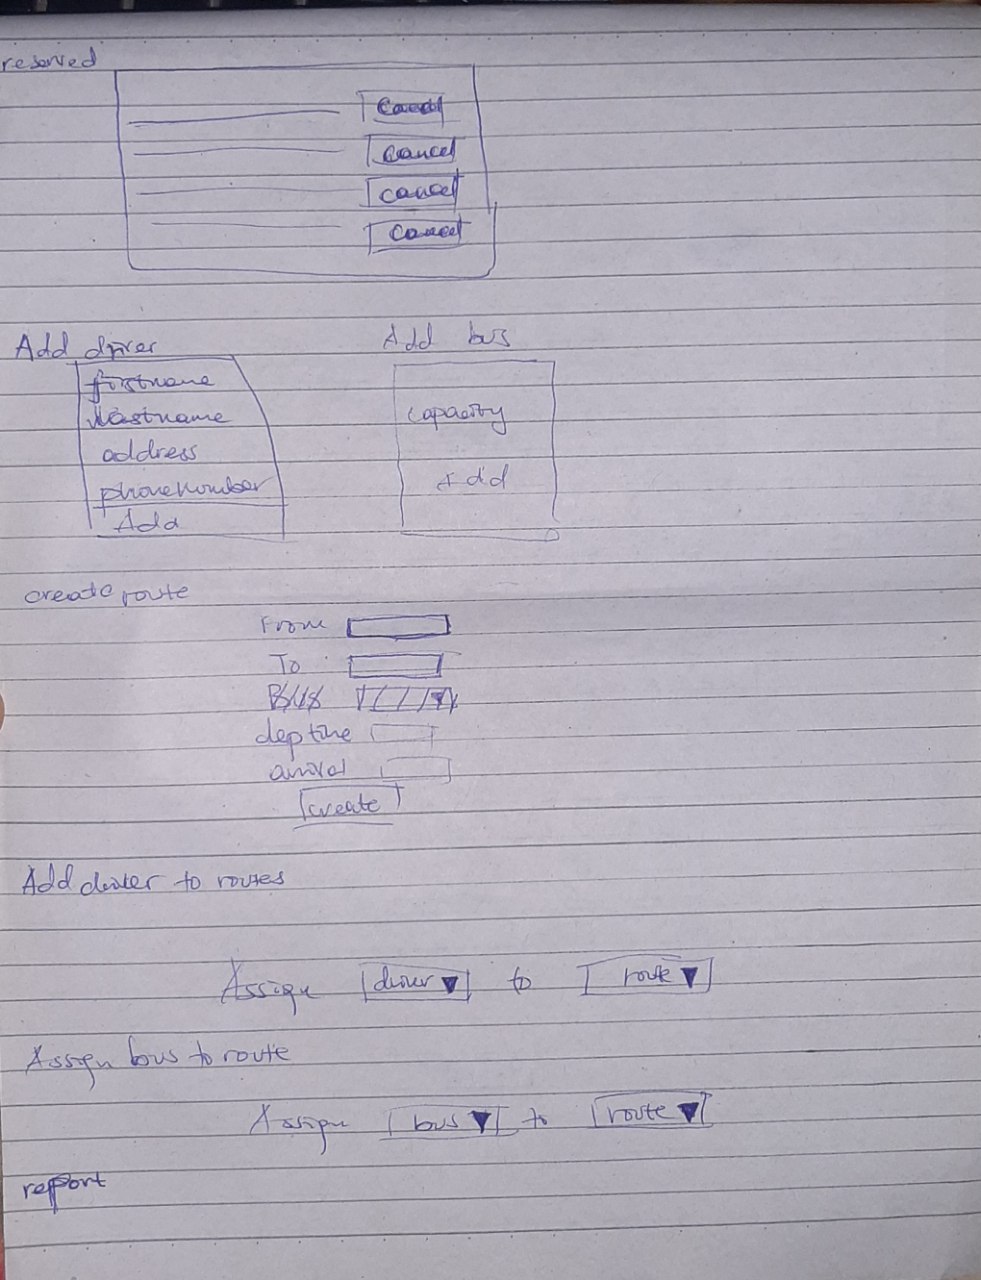 reserved
Cancel
Cancel
Cancel
Cancel
Add driver
firstname
lastname
address
phonenumber
Add
Add bus
capacity
Add
create route
From
To
Bus
dep time
arrival
create
Add driver to routes
Assign driver ▼ to route ▼
Assign bus to route
Assign bus ▼ to route ▼
report